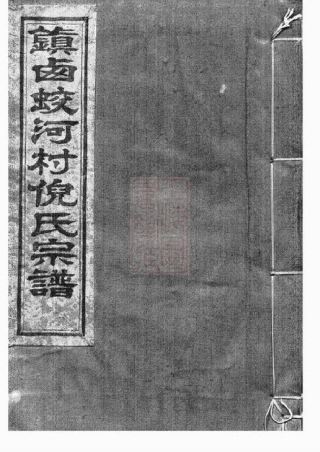 鎮卤蛟河村倪氏宗譜